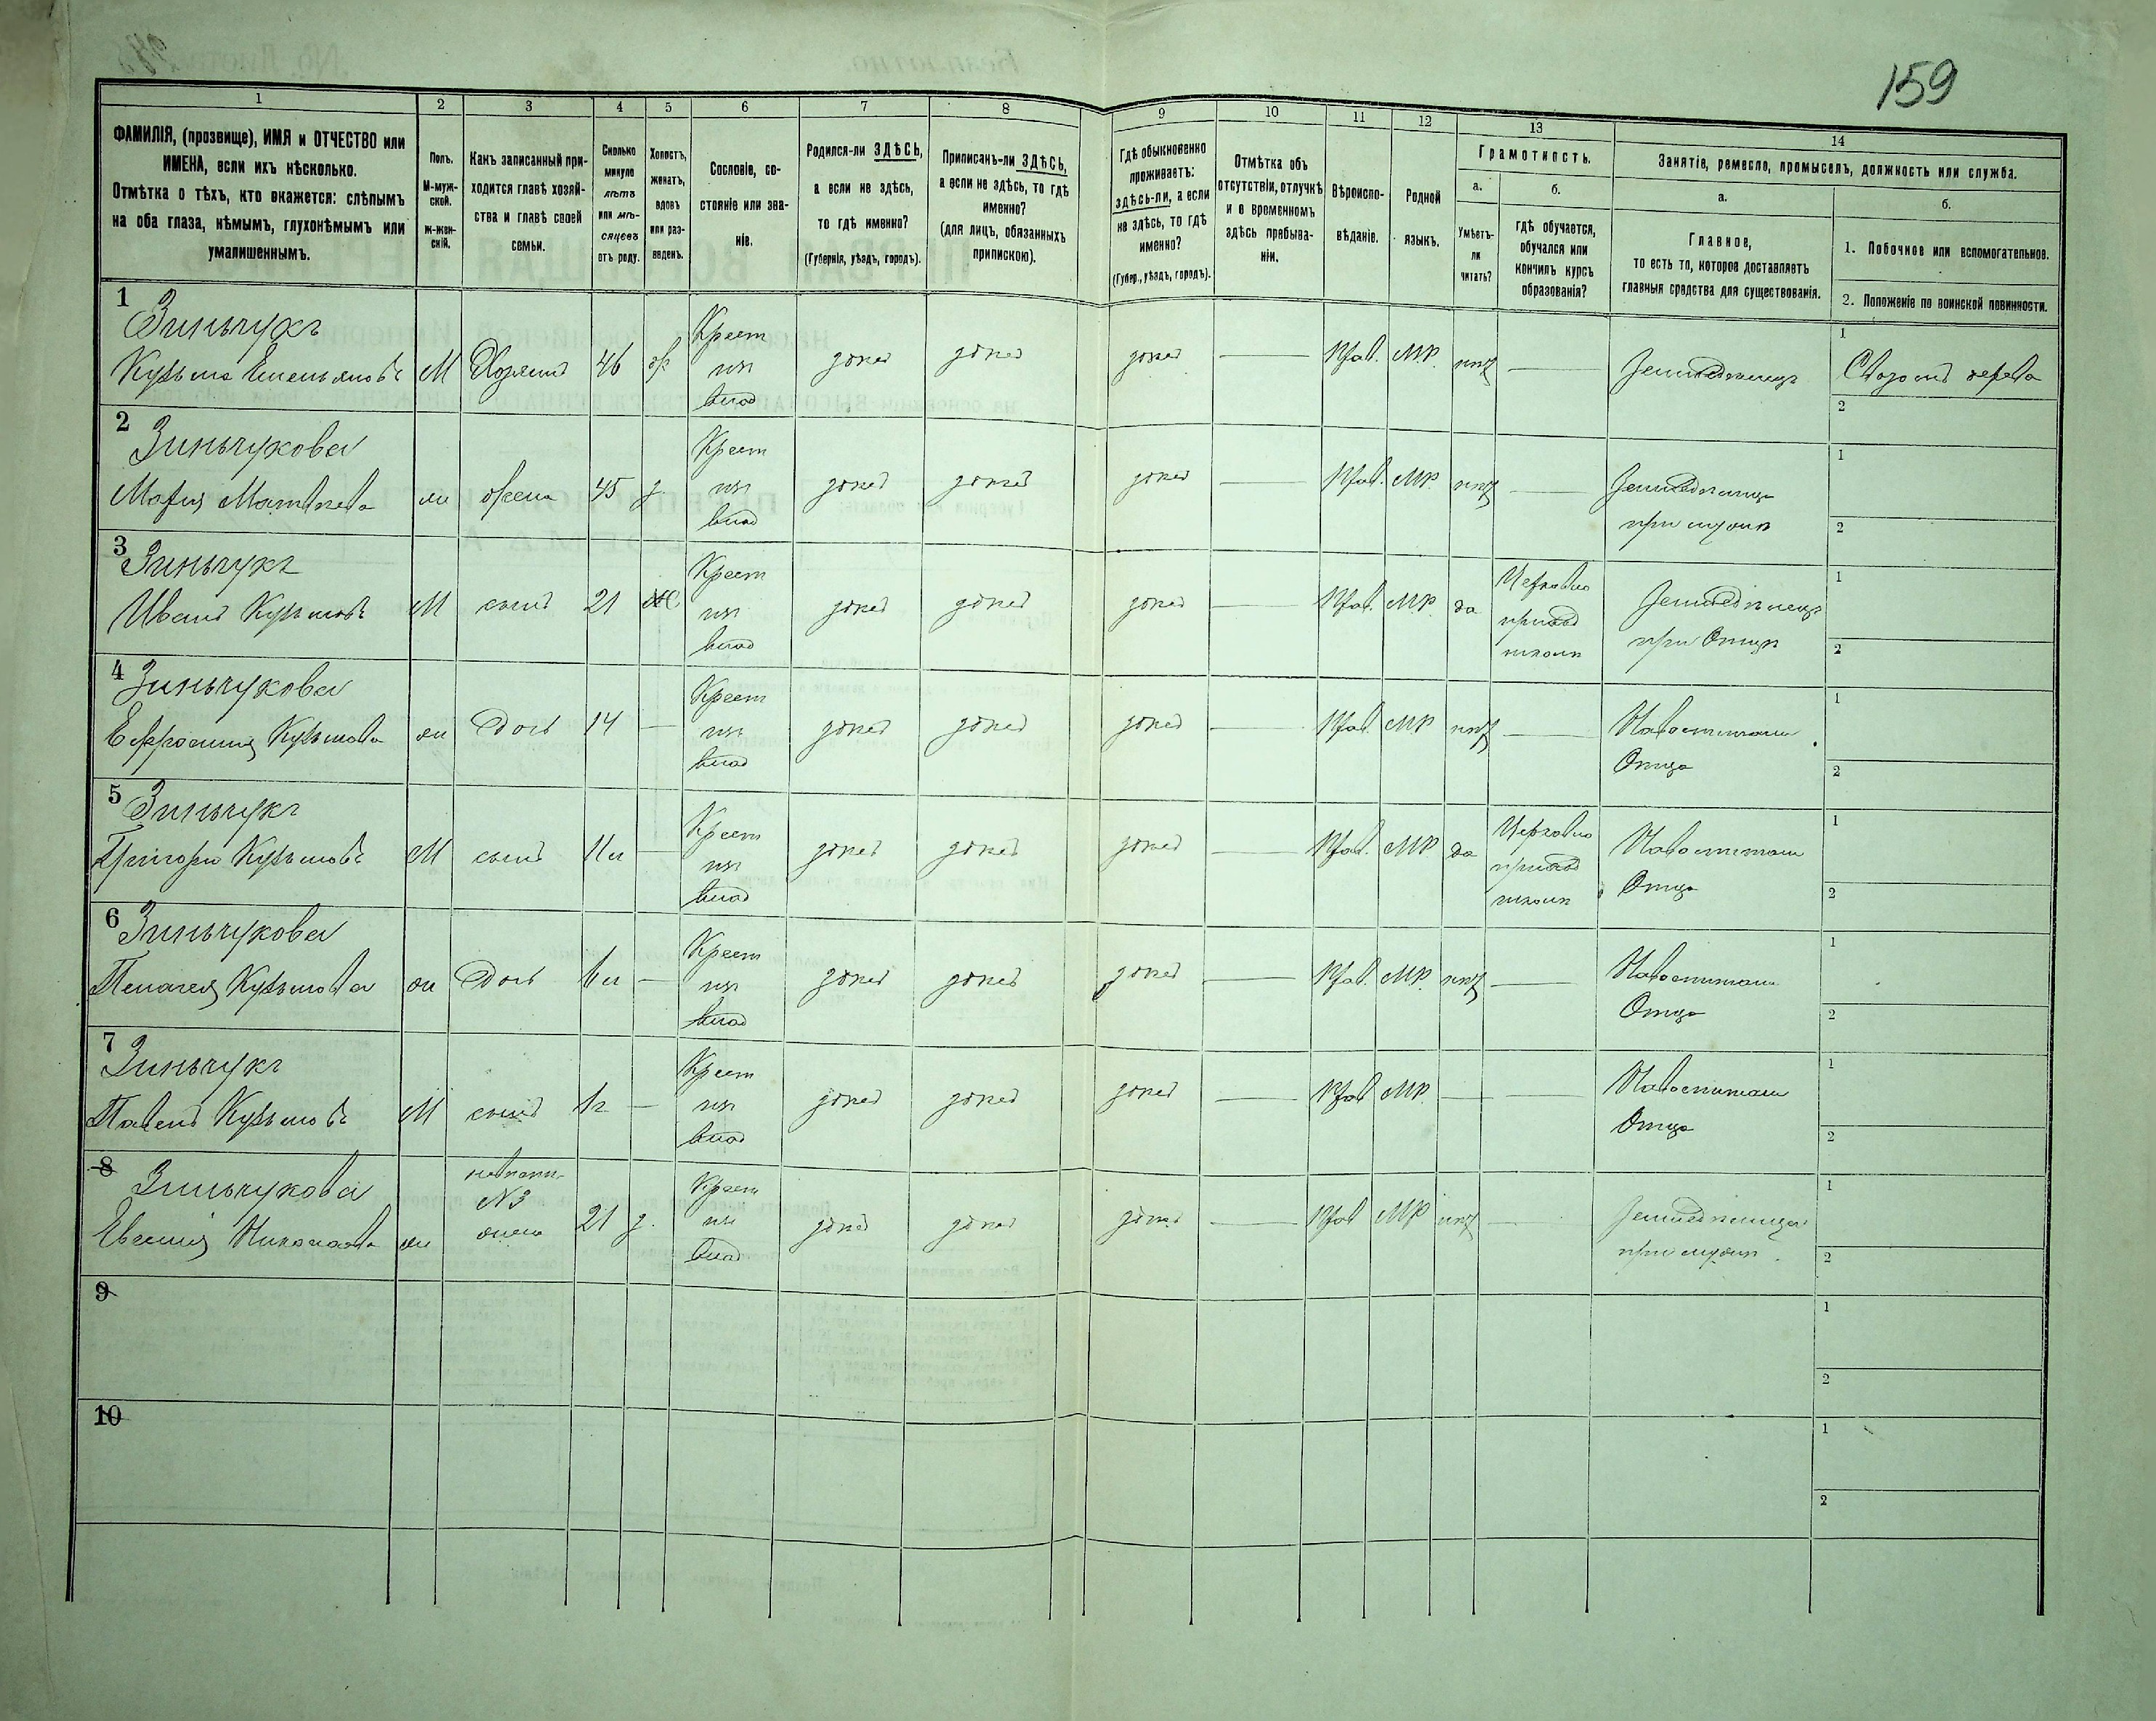 159
1
2
3
4
5
6
7
8
9
10
11
12
13
14
ФАМИЛІЯ, (прозвище), ИМЯ и ОТЧЕСТВО или
ИМЕНА, если ихъ нѣсколько.
Отмѣтка о тѣхъ, кто окажется: слѣпымъ
на оба глаза, нѣмымъ, глухонѣмымъ или
умалишеннымъ.
Полъ.
М-муж-
ской.
Ж-жен-
скій.
Какъ записанный при-
ходится главѣ хозяй-
ства и главѣ своей
семьи.
Сколько
минуло
лѣтъ
или мѣ-
сяцевъ
отъ роду.
Холостъ,
женатъ,
вдовъ
или раз-
веденъ.
Сословіе, со-
стояніе или зва-
ніе.
Родился-ли ЗДѢСЬ,
а если не здѣсь,
то гдѣ именно?
(Губернія, уѣздъ, городъ).
Приписанъ-ли ЗДѢСЬ,
а если не здѣсь, то гдѣ
именно?
(для лицъ, обязанныхъ
припискою).
Гдѣ обыкновенно
проживаетъ:
здѣсь-ли, а если
не здѣсь, то гдѣ
именно?
(Губер., уѣздъ, городъ).
Отмѣтка объ
отсутствіи, отлучкѣ
и о временномъ
здѣсь пребыва-
ніи.
Вѣроиспо-
вѣданіе.
Родной
языкъ.
Грамотность.
а.
Умѣетъ-
ли
читать?
б.
гдѣ обучается,
обучался или
кончилъ курсъ
образованія?
Занятіе, ремесло, промыселъ, должность или служба.
а.
Главное,
то есть то, которое доставляетъ
главныя средства для существованія.
б.
1. Побочное или вспомогательное.
2. Положеніе по воинской повинности.
1
Зинчукъ
Кузьма Емельяновъ М Хозяинъ 46 Крест здѣсь здѣсь здѣсь — Прав. МР. нѣтъ — Земледѣлецъ
1
2
2
Зиньчукова
Марія Матвѣева жена 45 з. Крест здѣсь здѣсь здѣсь — Прав. МР. нѣтъ — Земледѣлица
при мужѣ
1
2
3
Зиньчукъ
Иванъ Кузьмовъ М сынъ 21 Крест здѣсь здѣсь здѣсь — Прав. МР. да Церковно
приход
школѣ
Земледѣлецъ
при Отцѣ
1
2
4
Зиньчукова
Ефросинія Кузьмова дочь 14 — Крест здѣсь здѣсь здѣсь — Прав. МР нѣтъ —
Отца
1
2
5
Зиньчукъ
Григори Кузьмовъ М сынъ — Крест здѣсь здѣсь здѣсь — Прав. МР да Церковно
приход
школѣ
Отца
1
2
6
Зиньчукова
Пелагея Кузьмова дочь — Крест здѣсь здѣсь здѣсь — Прав. МР. нѣтъ —
Отца
1
2
7
Зиньчукъ
Павелъ Кузьмовъ М сынъ 1г — Крест здѣсь здѣсь здѣсь — Прав МР. — —
Отца
1
2
8
Зиньчукова
Евгенія Николаева №3 жена 21 з. Крест здѣсь здѣсь здѣсь — Прав МР нѣтъ — Земледѣлица
при мужѣ
1
2
9
1
2
10
1
2